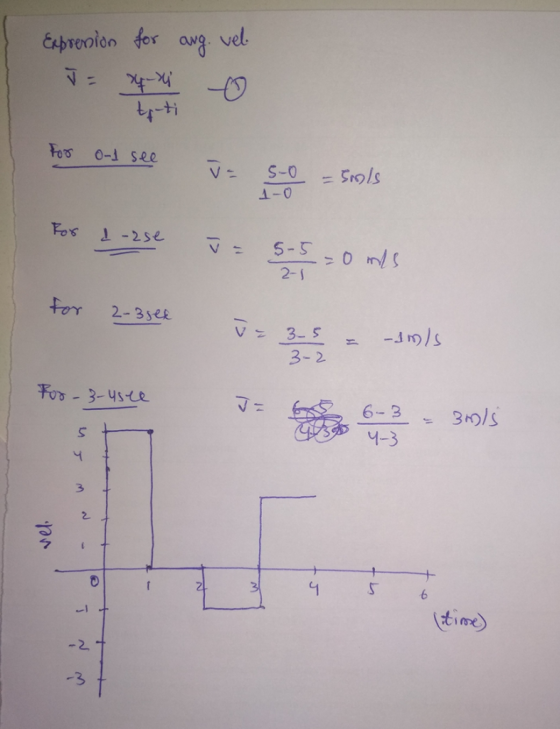 Expression for avg. vel.
V̄ = xf-xi / tf-ti —①
For 0-1 see V̄ = 5-0 / 1-0 = 5m/s
For 1-2se V̄ = 5-5 / 2-1 = 0 m/s
For 2-3see V̄ = 3-5 / 3-2 = -1m/s
For - 3-4see V̄ = 6-3 / 4-3 = 3m/s
5
4
3
2
1
vel.
0 1 2 3 4 5 6
-1
(time)
-2
-3